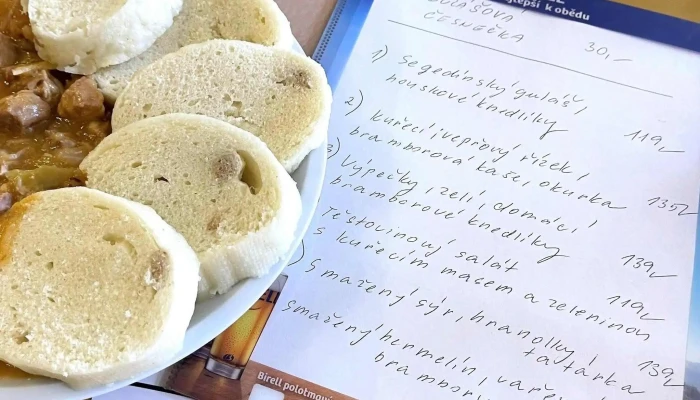 k obědu
ČESNEČKA 30,-
1) Segedínský guláš,
houskové knedlíky 119,-
2) Kuřecí i vepřový řízek,
bramborová kaše, okurka 135,-
3) Výpečky, zelí, domácí
bramborové knedlíky 139,-
Těstovinový salát
s kuřecím masem a zeleninou 119,-
Smažený sýr, hranolky,
tatarka 139,-
Smažený hermelín,
Birell